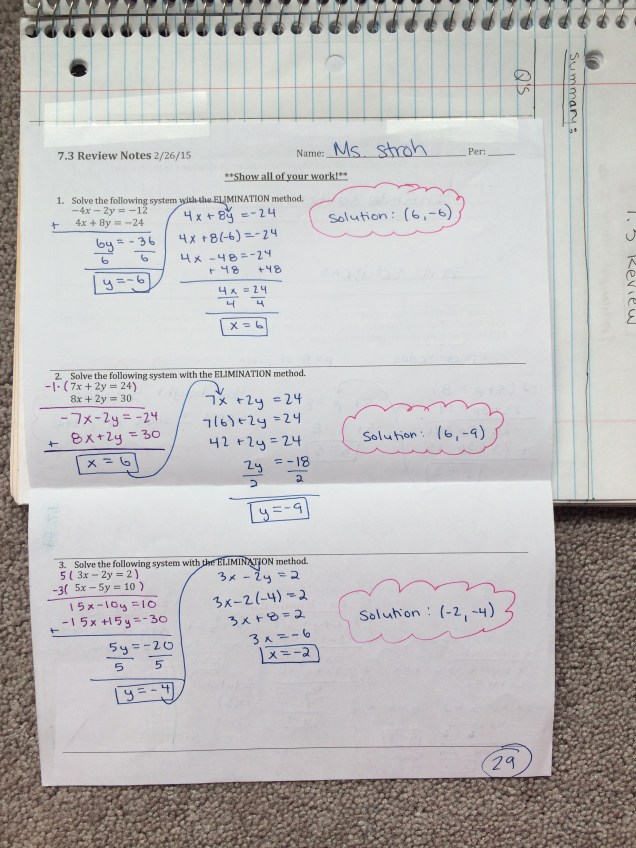 Summary:
Q's
7.3 Review
7.3 Review Notes 2/26/15 Name: Ms. Stroh Per:
**Show all of your work!**
1. Solve the following system with the ELIMINATION method.
−4x − 2y = −12
+ 4x + 8y = −24
6y = -36
6 6
y = -6
4x + 8y = -24
4x + 8(-6) = -24
4x - 48 = -24
+ 48 +48
4x = 24
4 4
x = 6
Solution: (6, -6)
2. Solve the following system with the ELIMINATION method.
-1·(7x + 2y = 24)
8x + 2y = 30
-7x - 2y = -24
+ 8x + 2y = 30
x = 6
7x + 2y = 24
7(6) + 2y = 24
42 + 2y = 24
2y = -18
2 2
y = -9
Solution: (6, -9)
3. Solve the following system with the ELIMINATION method.
5(3x − 2y = 2)
-3(5x − 5y = 10)
15x - 10y = 10
+ -15x + 15y = -30
5y = -20
5 5
y = -4
3x - 2y = 2
3x - 2(-4) = 2
3x + 8 = 2
3x = -6
x = -2
Solution: (-2, -4)
29